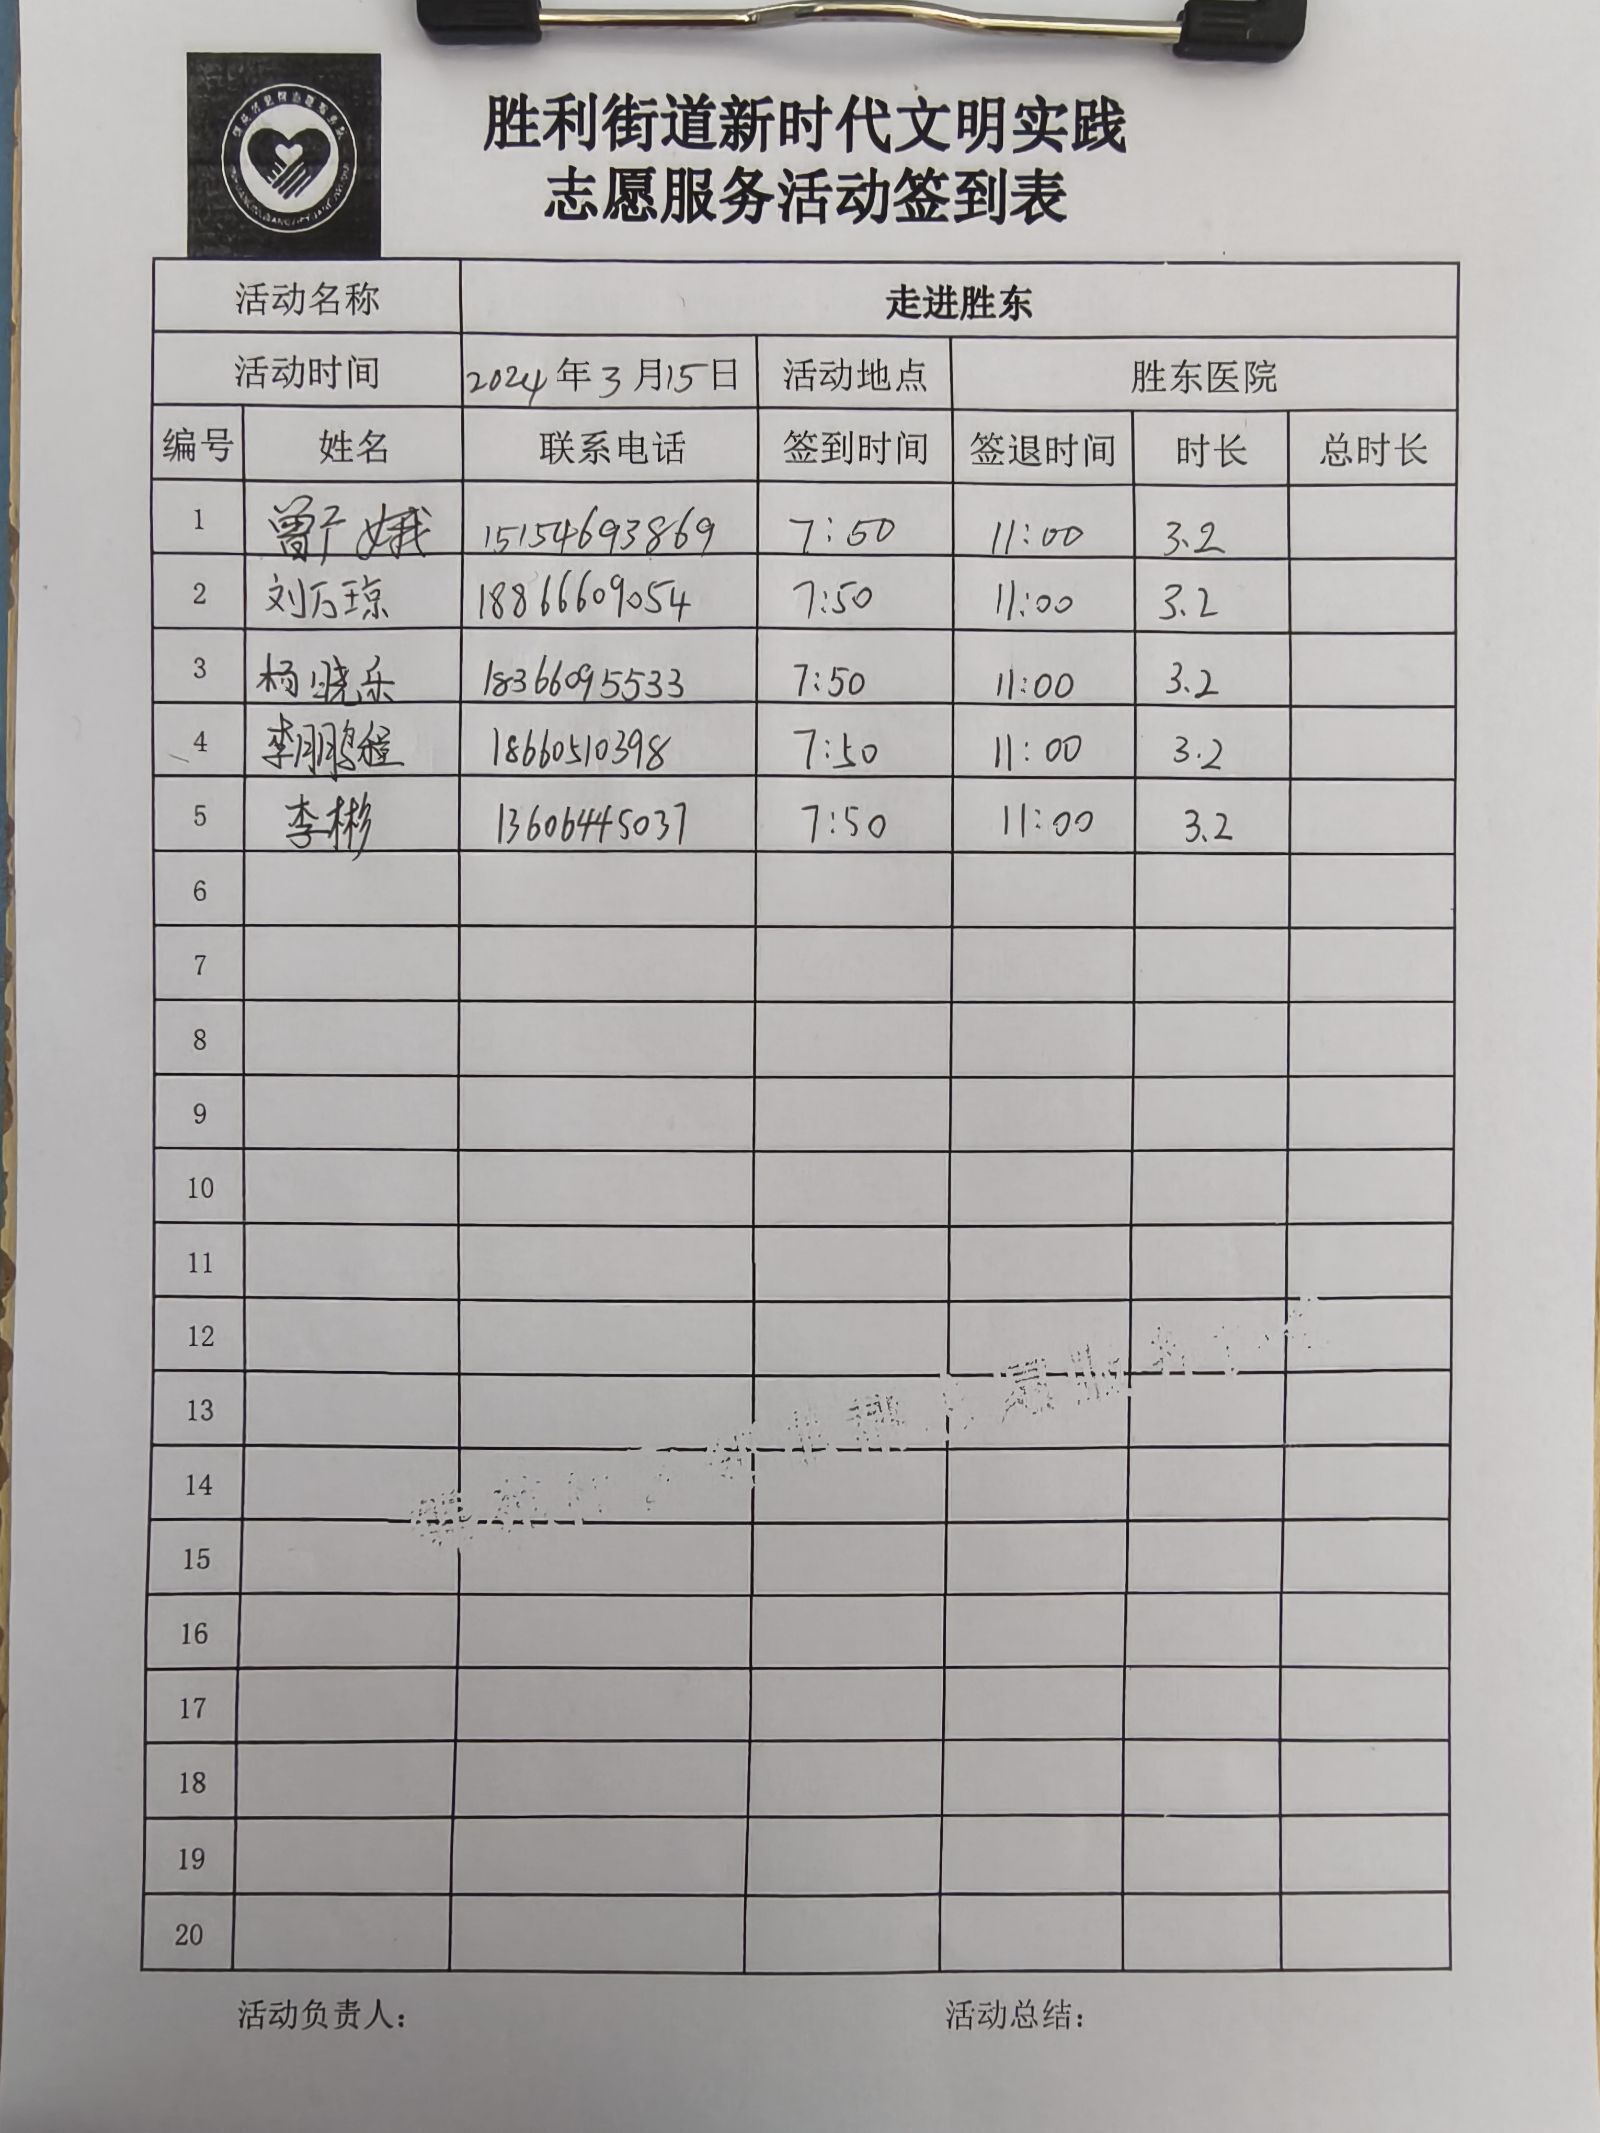 胜利街道新时代文明实践
志愿服务活动签到表
活动名称 走进胜东
活动时间 2024年3月15日 活动地点 胜东医院
编号 姓名 联系电话 签到时间 签退时间 时长 总时长
1 曾广娥 15154693869 7:50 11:00 3.2
2 刘万琼 18866609054 7:50 11:00 3.2
3 杨晓乐 18366095533 7:50 11:00 3.2
4 李鹏程 18660510398 7:50 11:00 3.2
5 李彬 13606445037 7:50 11:00 3.2
6
7
8
9
10
11
12
13
14
15
16
17
18
19
20
活动负责人： 活动总结：